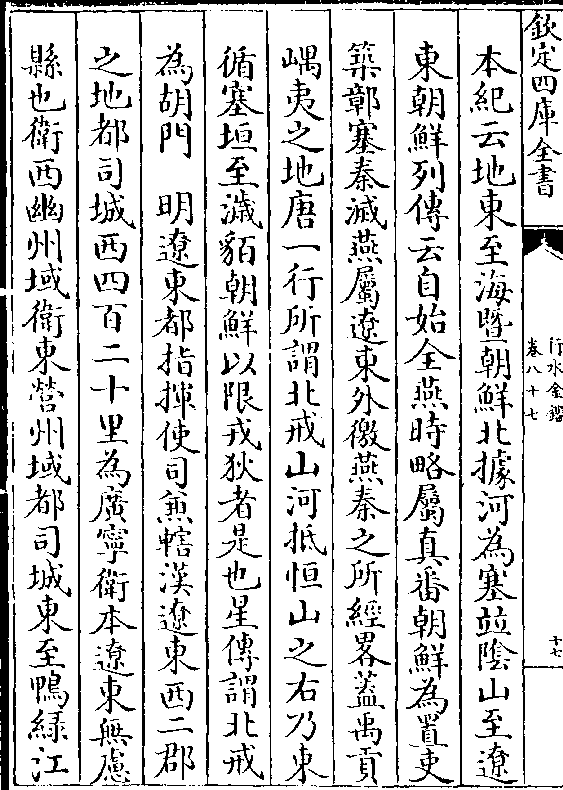 欽定四庫全書
行水金鑑
卷八十七
十七
本紀云地東至海曁朝鮮北據河為塞竝隂山至遼
東朝鮮列傳云自始全燕時略屬真番朝鮮為置吏
築鄣塞秦滅燕屬遼東外徼燕秦之所經畧葢禹貢
嵎夷之地唐一行所謂北戒山河抵恒山之右乃東
循塞垣至濊貊朝鮮以限戎狄者是也星傳謂北戒
為胡門　明遼東都指揮使司兼轄漢遼東西二郡
之地都司城西四百二十里為廣寧衛本遼東無慮
縣也衛西幽州域衛東營州域都司城東至鴨緑江